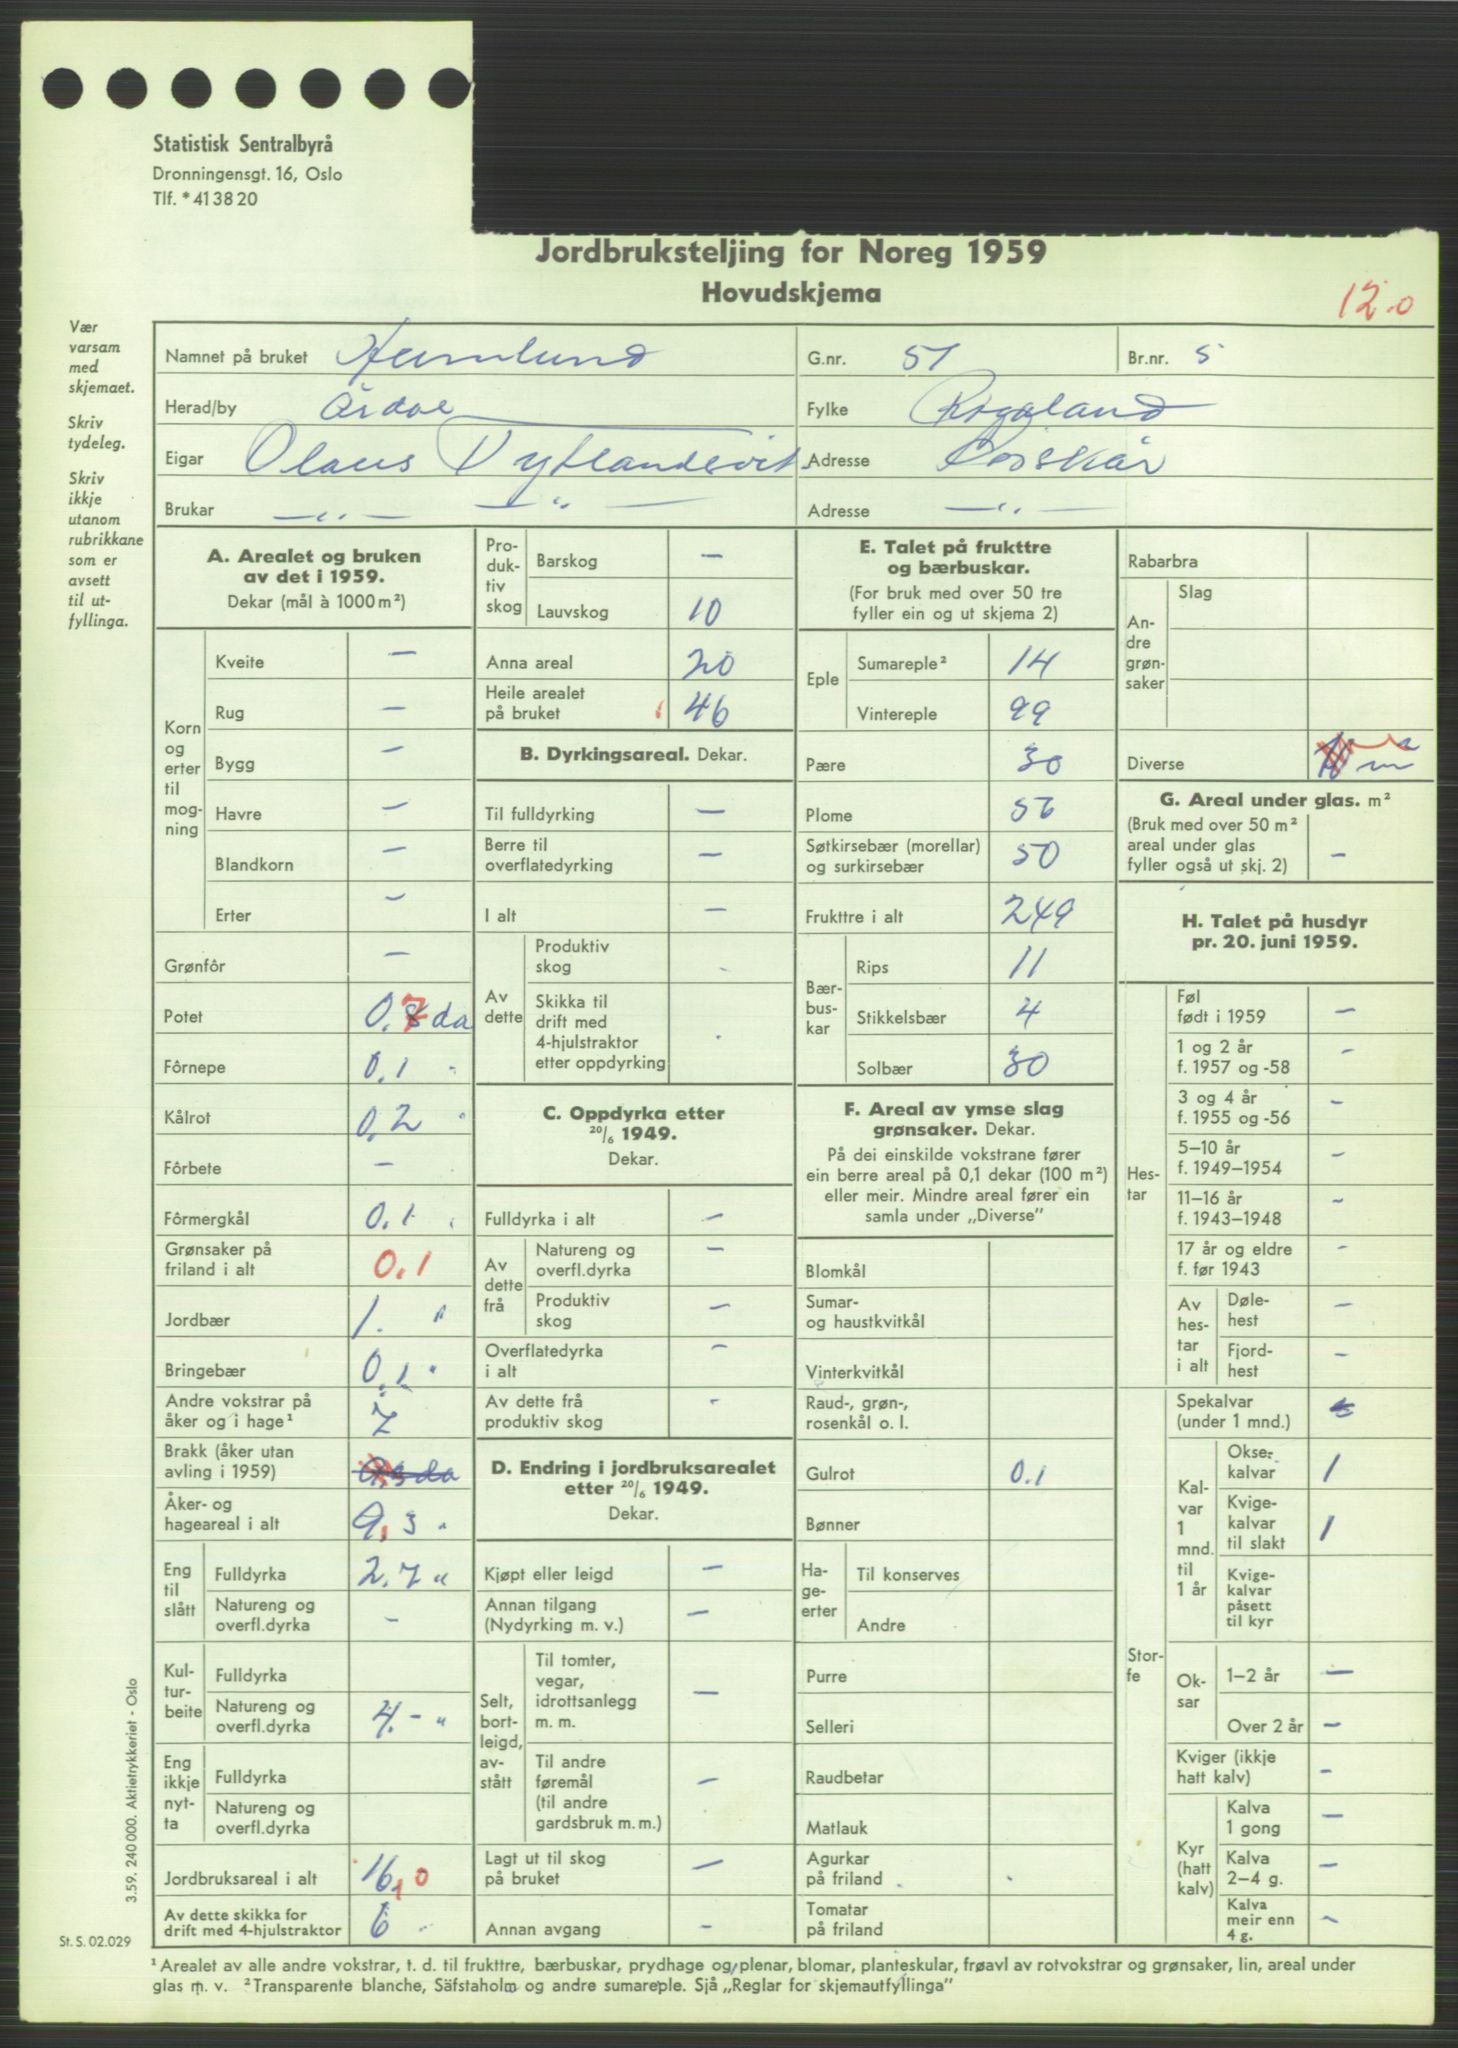 Statistisk Sentralbyrå
Dronningensgt. 16, Oslo
Tlf. * 41 38 20
Jordbruksteljing for Noreg 1959
Hovudskjema
12.0
Vær
varsam
med
skjemaet.
Skriv
tydeleg.
Skriv
ikkje
utanom
rubrikkane
som er
avsett
til ut-
fyllinga.
Namnet på bruket
G.nr. 51 Br.nr. 5
Herad/by Årdal Fylke Rogaland
Eigar Olaus Tytlandsvik Adresse
Brukar — „ — — „ — Adresse — „ —
A. Arealet og bruken
av det i 1959.
Dekar (mål à 1000 m²)
Korn
og
erter
til
mog-
ning
Kveite —
Rug —
Bygg —
Havre —
Blandkorn —
Erter —
Grønfôr —
Potet 0,7 da
Fôrnepe 0,1 "
Kålrot 0,2 "
Fôrbete —
Fôrmergkål 0,1 "
Grønsaker på
friland i alt 0,1
Jordbær 1. "
Bringebær 0,1 "
Andre vokstrar på
åker og i hage¹ 7
Brakk (åker utan
avling i 1959)
Åker- og
hageareal i alt 9,3 "
Eng
til
slått
Fulldyrka 2,7 "
Natureng og
overfl.dyrka —
Kul-
tur-
beite
Fulldyrka
Natureng og
overfl.dyrka 4.- "
Eng
ikkje
nyt-
ta
Fulldyrka
Natureng og
overfl.dyrka
Jordbruksareal i alt 16,0
Av dette skikka for
drift med 4-hjulstraktor 6 "
Pro-
duk-
tiv
skog
Barskog —
Lauvskog 10
Anna areal 20
Heile arealet
på bruket 46
B. Dyrkingsareal. Dekar.
Til fulldyrking —
Berre til
overflatedyrking —
I alt —
Av
dette
Produktiv
skog
Skikka til
drift med
4-hjulstraktor
etter oppdyrking
C. Oppdyrka etter
20/6 1949.
Dekar.
Fulldyrka i alt —
Av
dette
frå
Natureng og
overfl.dyrka —
Produktiv
skog —
Overflatedyrka
i alt —
Av dette frå
produktiv skog -
D. Endring i jordbruksarealet
etter 20/6 1949.
Dekar.
Kjøpt eller leigd —
Annan tilgang
(Nydyrking m. v.) —
Selt,
bort-
leigd,
av-
stått
Til tomter,
vegar,
idrottsanlegg
m. m. —
Til andre
føremål
(til andre
gardsbruk m. m.) —
Lagt ut til skog
på bruket —
Annan avgang —
E. Talet på frukttre
og bærbuskar.
(For bruk med over 50 tre
fyller ein og ut skjema 2)
Eple
Sumareple² 14
Vintereple 99
Pære 30
Plome 56
Søtkirsebær (morellar)
og surkirsebær 50
Frukttre i alt 249
Bær-
bus-
kar
Rips 11
Stikkelsbær 4
Solbær 30
F. Areal av ymse slag
grønsaker. Dekar.
På dei einskilde vokstrane fører
ein berre areal på 0,1 dekar (100 m²)
eller meir. Mindre areal fører ein
samla under „Diverse”
Blomkål
Sumar-
og haustkvitkål
Vinterkvitkål
Raud-, grøn-,
rosenkål o. l.
Gulrot 0.1
Bønner
Ha-
ge-
erter
Til konserves
Andre
Purre
Selleri
Raudbetar
Matlauk
Agurkar
på friland
Tomatar
på friland
Rabarbra
An-
dre
grøn-
saker
Slag
Diverse
G. Areal under glas. m²
(Bruk med over 50 m²
areal under glas
fyller også ut skj. 2) —
H. Talet på husdyr
pr. 20. juni 1959.
Hes-
tar
Føl
født i 1959 —
1 og 2 år
f. 1957 og -58 —
3 og 4 år
f. 1955 og -56 —
5–10 år
f. 1949–1954 —
11–16 år
f. 1943–1948 —
17 år og eldre
f. før 1943 —
Av
hes-
tar
i alt
Døle-
hest —
Fjord-
hest —
Stor-
fe
Spekalvar
(under 1 mnd.)
Kal-
var
1
mnd.
til
1 år
Okse-
kalvar 1
Kvige-
kalvar
til slakt 1
Kvige-
kalvar
påsett
til kyr
Ok-
sar
1–2 år —
Over 2 år —
Kviger (ikkje
hatt kalv) —
Kyr
(hatt
kalv)
Kalva
1 gong —
Kalva
2–4 g. —
Kalva
meir enn
4 g. —
3.59. 240 000. Aktietrykkeriet - Oslo
St. S. 02.029
¹ Arealet av alle andre vokstrar, t. d. til frukttre, bærbuskar, prydhage og plenar, blomar, planteskular, frøavl av rotvokstrar og grønsaker, lin, areal under
glas m. v. ² Transparente blanche, Säfstaholm og andre sumareple. Sjå „Reglar for skjemautfyllinga”